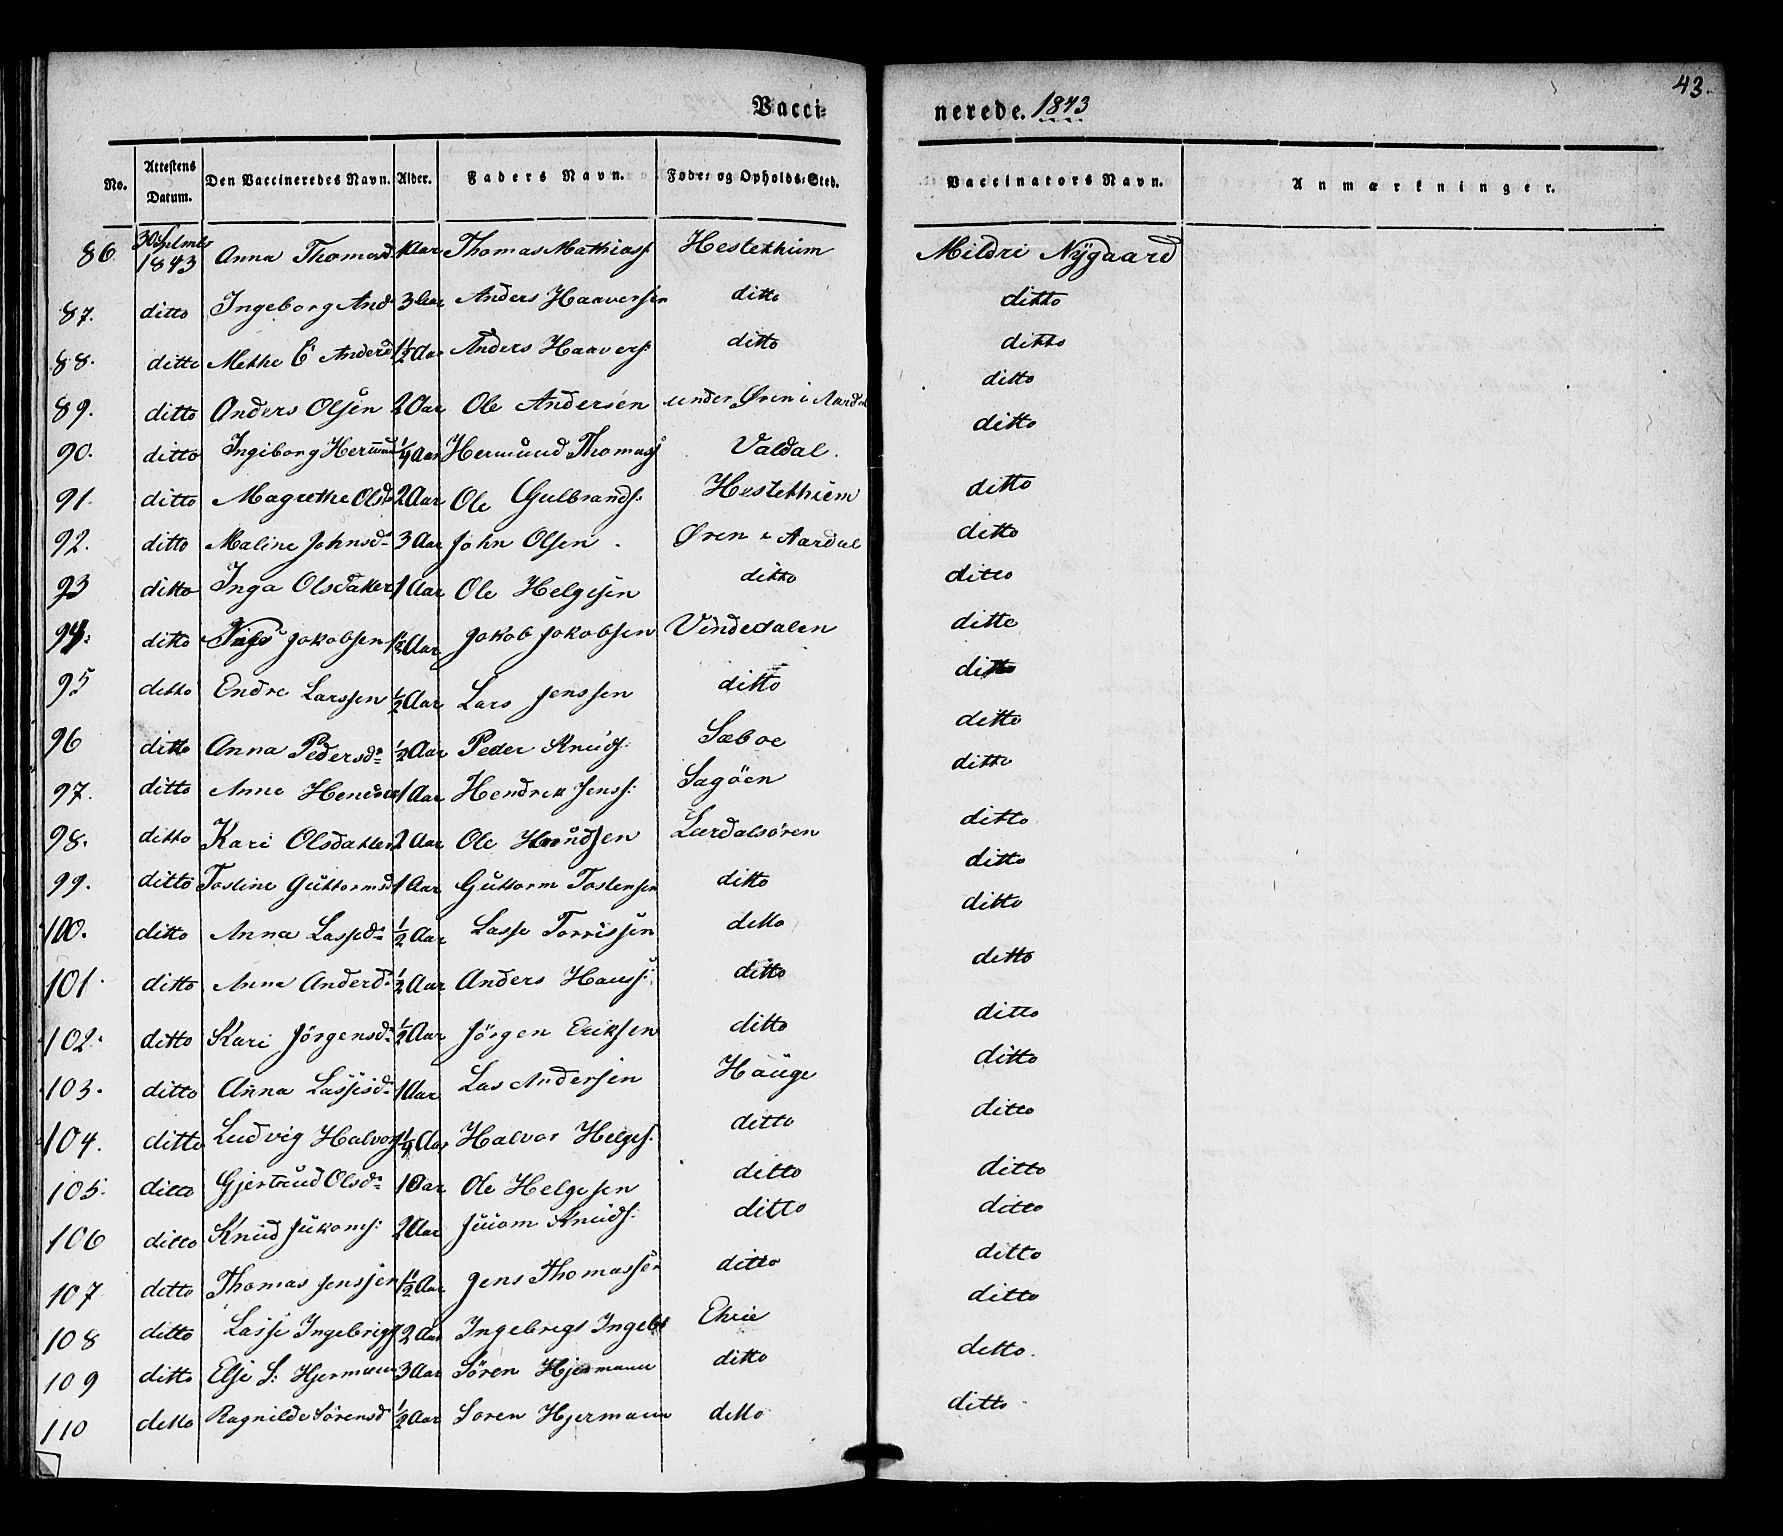 43.
Vacci=
nerede. 1843
No. Attestens Datum. Den Vaccineredes Navn. Alder. Faders Navn. Føde= og Opholds=Sted. Vaccinators Navn. Anmærkninger.
86 30 Sptmbr 1843 Anna Thomasd 1 Aar Thomas Mathiass: Hestethum Mildri Nÿgaard
87. ditto Ingeborg And 3 Aar Anders Haaversen ditto ditto
88. ditto Methe Anderd 1½ Aar Anders Haavers: ditto ditto
89. ditto Anders Olsen 2 Aar Ole Andersen under Øren i Aardal ditto
90. ditto Ingiborg Hermund ¼ Aar Hermund Thomass Valdal. ditto
91. ditto Magrethe Olsd 2 Aar Ole Gulbrands: Hestethiem ditto
92. ditto Maline Johnsd: 3 Aar John Olsen. Øren i Aardal ditto
93 ditto Inga Olsdatter 1 Aar Ole Helgesen ditto ditto
94: ditto Jakobsen 1½ Aar Jakob Jakobsen Vindedalen ditto
95 ditto Endre Larssen ½ Aar Lars Jenssen ditto ditto
96 ditto Anna Pedersd: ½ Aar Peder Knuds: Sæboe ditto
97. ditto Anne 1 Aar Hendrik Jenss: Sagöen ditto
98. ditto Kari Olsdatter 2 Aar Ole Lærdalsören ditto
99. ditto Tostine Guttormsd 1 Aar Guttorm Tostensen ditto ditto
100. ditto Anna Lassed: ½ Aar Lasse Torrissen ditto ditto
101. ditto Anna Anderd: ½ Aar Anders Hanss: ditto ditto
102. ditto Kari Jörgensd: ½ Aar Jörgen Eriksen ditto ditto
103. ditto Anna Lassisd: 1 Aar Las Andersen Hauge ditto
104. ditto Ludvig Halvors ¼ Aar Halvor Helges: ditto ditto
105. ditto Gjertrud Olsd: 1 Aar Ole Helgesen ditto ditto
106 ditto Knud 2 Aar Knuds: ditto ditto
107 ditto Thomas Jenssen 1½ Aar Jens Thomassen ditto ditto
108 ditto Lasse Ingebrigs 2 Aar Ingebrigt Ingebr ditto
109 ditto Else S: Hjermann 3 Aar Sören Hjermann ditto ditto.
110 ditto Ragnilde Sörensd ½ Aar Soren Hjermann ditto ditto